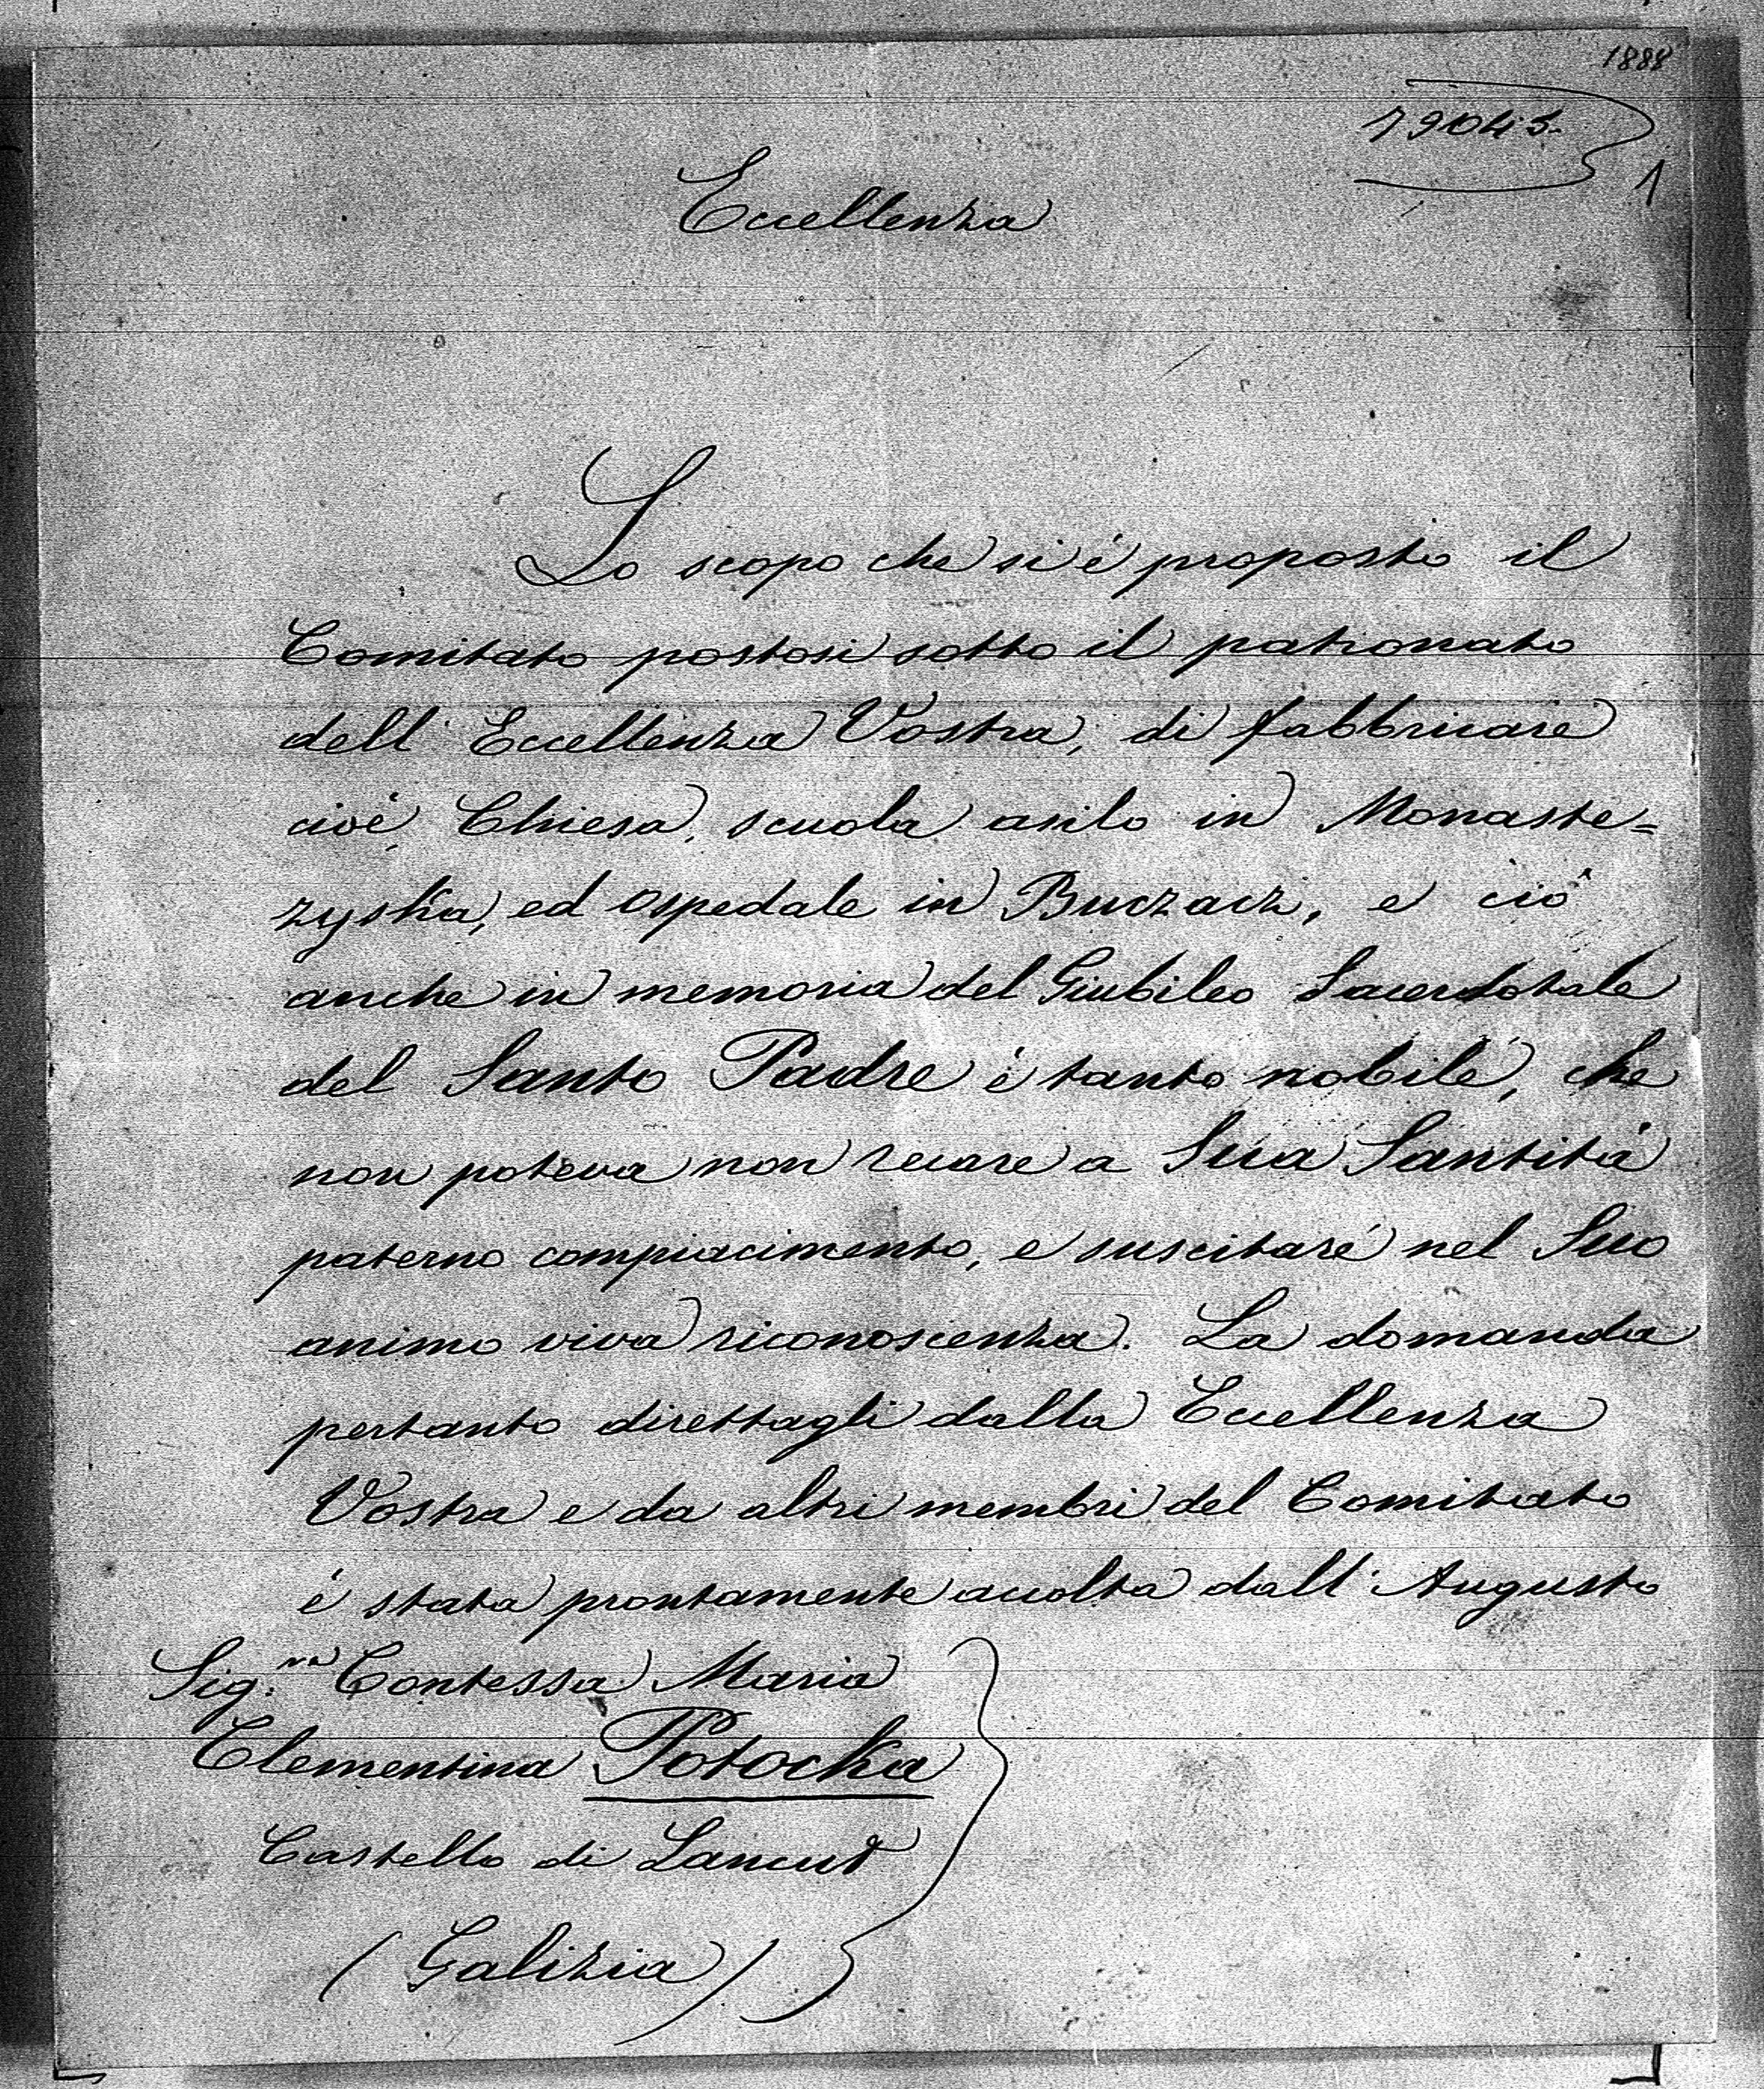 1888
79045.
1
Eccellenza
Lo scopo che si è proposto il
Comitato postosi sotto il patronato
dell'Eccellenza Vostra, di fabbricare
cioè Chiesa, scuola asilo in Monaste=
zyska, ed ospedale in Buczacz, e ciò
anche in memoria del Giubileo Sacerdotale
del Santo Padre è tanto nobile, che
non poteva non recare a Sua Santità
paterno compiacimento, e suscitare nel Suo
animo viva riconoscenza. La domanda
pertanto direttagli dalla Eccellenza
Vostra e da altri membri del Comitato
è stata prontamente accolta dall'Augusto
Sig.ra Contessa Maria
Clementina Potocka
Castello di Lancut
(Galizia)